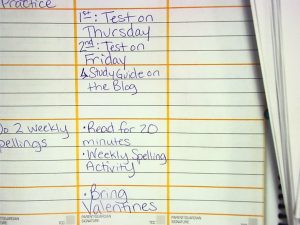 Practice
1st: Test on
Thursday
2nd: Test on
Friday
↳ Study Guide on
the Blog
Do 2 weekly
spellings
• Read for 20
minutes
• Weekly Spelling
Activity
• Bring
Valentines
PARENT/GUARDIAN
SIGNATURE
PARENT/GUARDIAN
SIGNATURE
PARENT/GUARDIAN
SIGNATURE